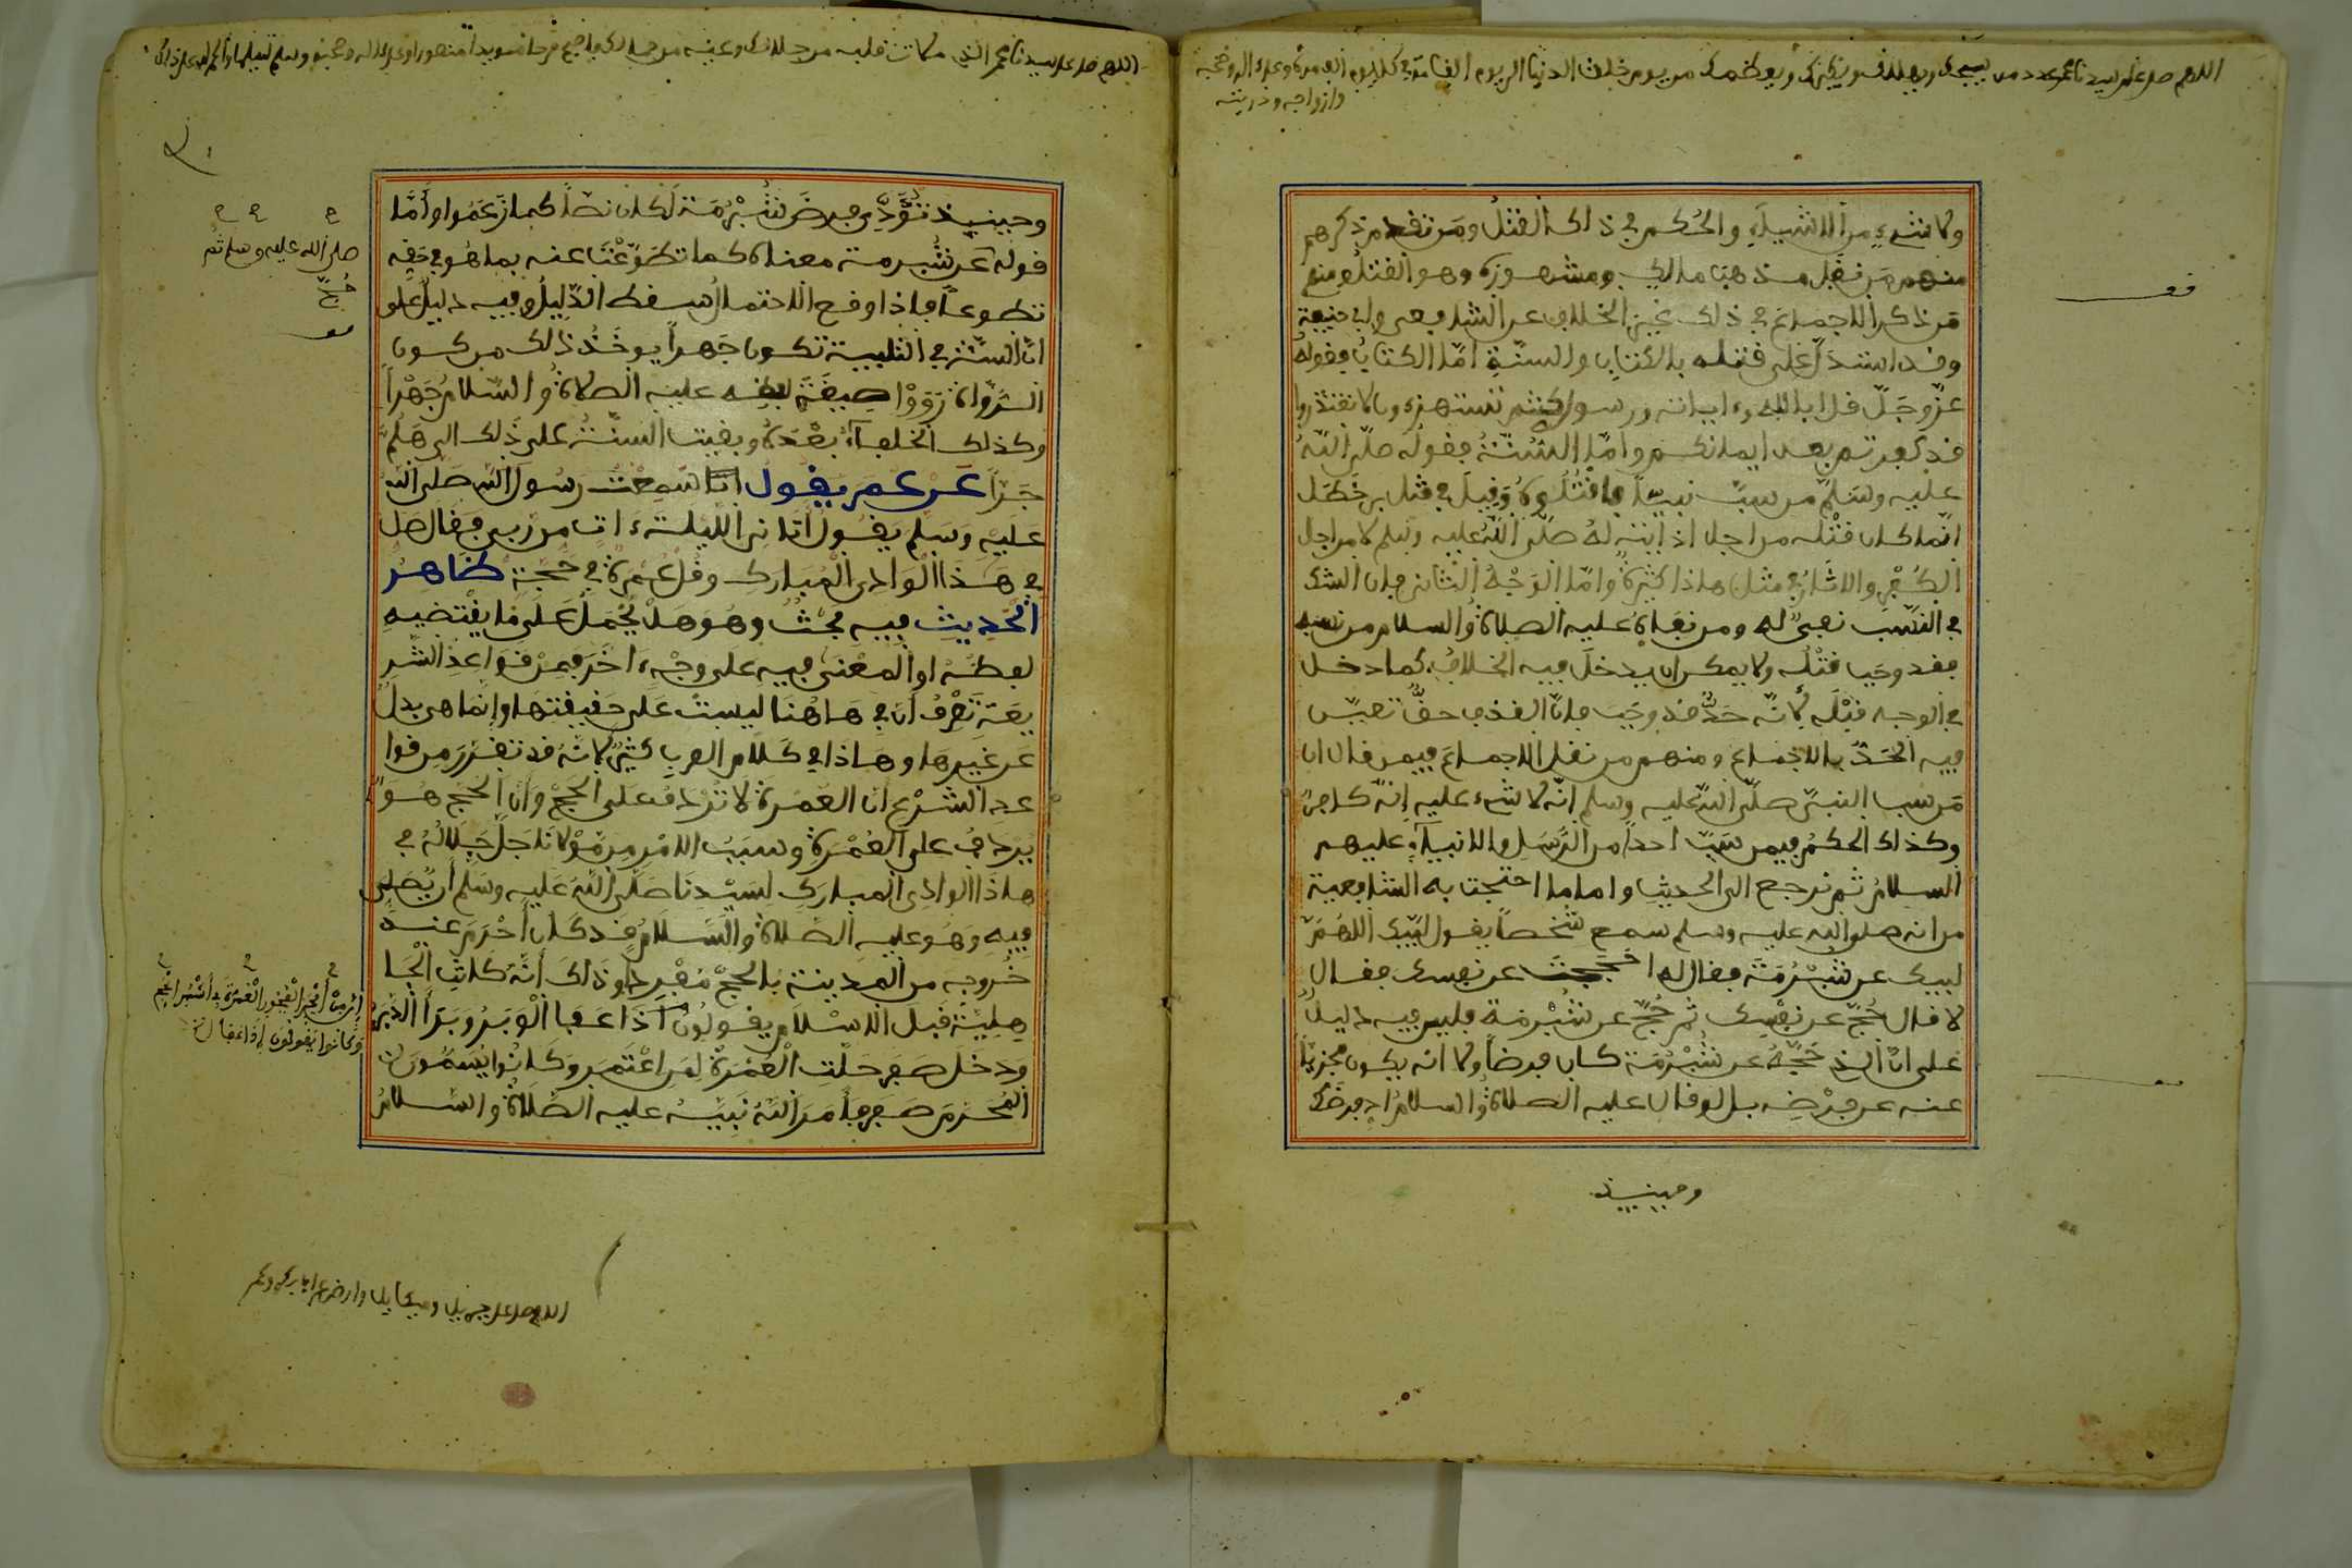 اللهم صل على سيدنا محمد عدد من يسبحك ويهللك ويكبرك ويعظمك من يوم خلقت الدنيا الى يوم القيامة في كل يوم الف مرة وعلى اله وصحبه
وازواجه وذريته
ولا شيء من الاشياء والحكم في ذلك القتل ومن تقدم ذكرهم
منهم من نقل مذهب مالك ومشهوره وهو القتل ومنهم
من ذكر الاجماع في ذلك بخبر الخلاف عن الشافعي وابي حنيفة
وقد استدل على قتله بالكتاب والسنة اما الكتاب فقوله
عز وجل قل ابالله وءاياته ورسوله كنتم تستهزءون لا تعتذروا
قد كفرتم بعد ايمانكم واما السنة فقوله صلى الله
عليه وسلم من سب نبيا فاقتلوه وقيل في قتل بن خطل
انما كان قتله من اجل اذايته له صلى الله عليه وسلم لا من اجل
الكفر والاثار في مثل هاذا كثيرة واما الوجه الثاني فان الشك
في النسب نفي له ومن نفاه عليه الصلاة والسلام من نسبه
فقد وجب قتله ولا يمكن ان يدخل فيه الخلاف كما دخل
في الوجه قبله لانه حد قد وجب فان القذف حق تعين
فيه الحد بالاجماع ومنهم من نقل الاجماع فيمن قال ان
من سب النبي صلى الله عليه وسلم انه لا شيء عليه إنه كافر
وكذلك الحكم فيمن سب احدا من الرسل والانبياء عليهم
السلام ثم نرجع الى الحديث واما ما احتجت به الشافعية
من انه صلى الله عليه وسلم سمع شخصا يقول لبيك اللهم
لبيك عن شبرمة فقال له احججت عن نفسك فقال
لا قال حج عن نفسك ثم حج عن شبرمة فليس فيه دليل
على ان الذي حجه عن شبرمة كان فرضا ولا انه يكون مجزيا
عنه عن فرضه بل لو قال عليه الصلاة والسلام اد فرضك
وحينيذ
اللهم صل على سيدنا محمد الذي ملات قلبه من جلالك وعينه من جمالك فاصبح فرحا مسرورا مويدا منصورا وعلى اله وصحبه وسلم تسليما والحمد لله على ذلك
وحينيذ تؤدي فرض شبرمة لكان نصا كما زعموا واما
قوله عن شبرمة معناه كما تطوعت عنه بما هو في حقه
تطوعا فاذا وقع الاحتمال سقط الدليل وفيه دليل على
ان السنة في التلبية تكون جهرا يوخذ ذلك من كون
الرواة رووا صيغة لفظه عليه الصلاة والسلام جهرا
وكذلك الخلفاء بعده وبقيت السنة على ذلك الى هلم
جرا عن عمر يقول سمعت رسول الله صلى الله
عليه وسلم يقول اتاني الليلة ءات من ربي فقال صل
في هذا الوادي المبارك وقل عمرة في حجة ظاهر
الحديث فيه بحث وهو هل يحمل على ما يقتضيه
لفظه او المعنى فيه على وجه ءاخر فمن قواعد الشر
يعة تعرف ان في هاهنا ليست على حقيقتها وإنما هي بدل
عن غيرها وهاذا في كلام العرب كثير لانه قد تقرر من قوا
عد الشرع ان العمرة لا تردف على الحج وان الحج هو
يردف على العمرة وسبب الامر من مولانا جل جلاله في
هاذا الوادي المبارك لسيدنا صلى الله عليه وسلم ان يصلي
فيه وهو عليه الصلاة والسلام قد كان احرم عند
خروجه من المدينة بالحج مفردا وذلك أنه كانت الجا
هلية قبل الاسلام يقولون اذا عفا الوبر وبرا الدبر
ودخل صفر حلت العمرة لمن اعتمر وكانوا يسمون
المحرم صفر فامر الله نبيه عليه الصلاة والسلام
صلى الله عليه وسلم ثم
حج
إن من أفجر الفجور العمرة في أشهر الحج
وكانوا يقولون إذا عفا
اللهم صل على جبريل وميكايل وارض عن ابي بكر وعمر